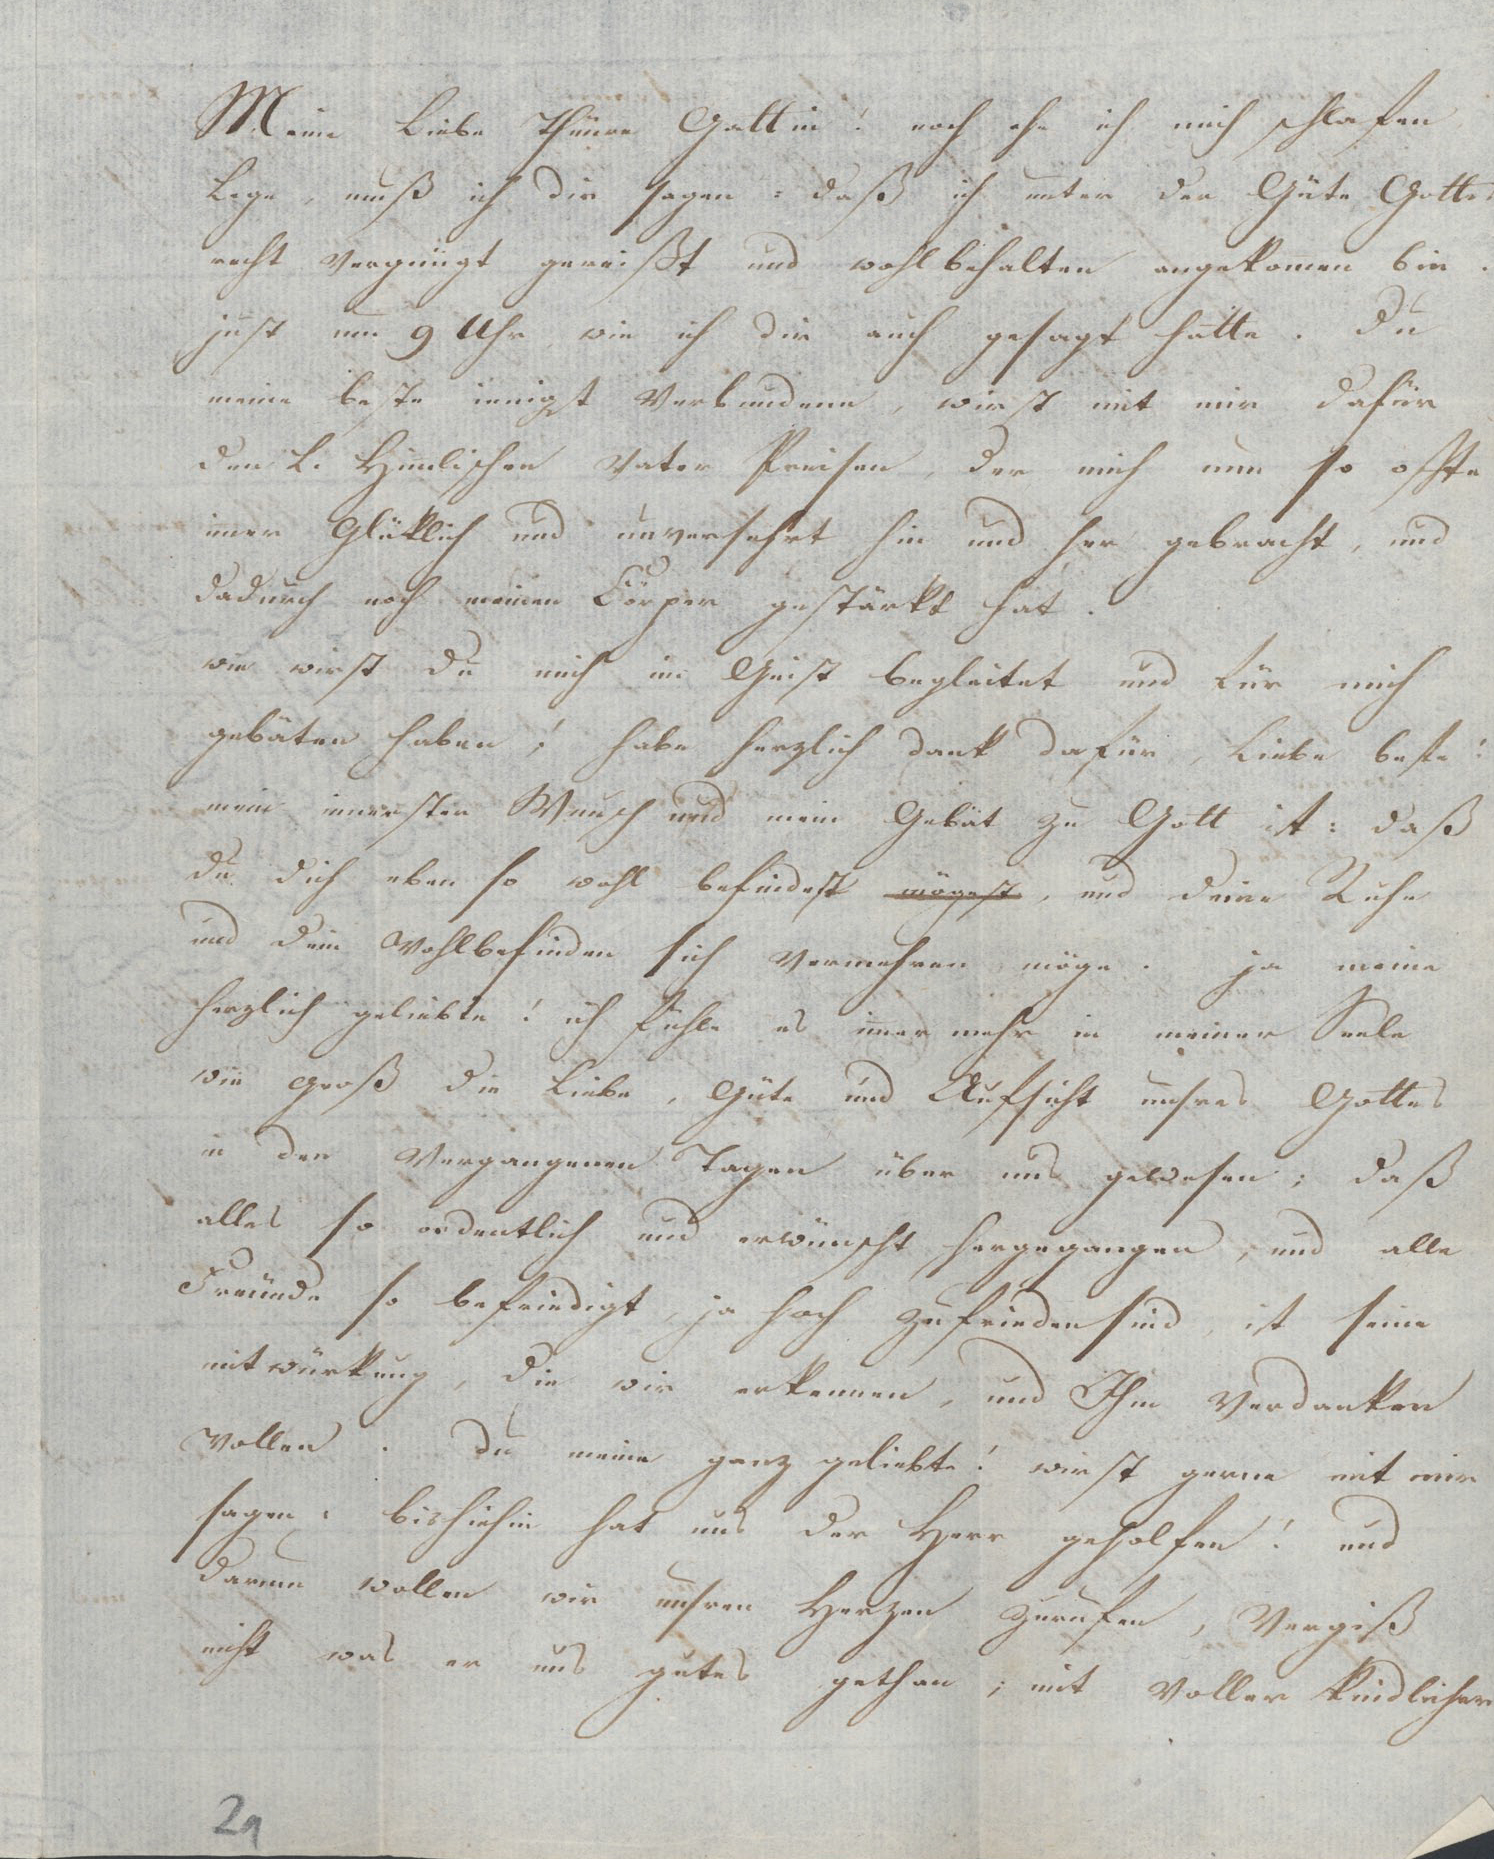 Meine Liebe Theüre Gattin! noch ehe ich mich schlafen
Lege, muß ich dir sagen: daß ich unter der Güte Gottes
recht vergnügt gereißt und wohlbehalten angekomen bin.
just um 9 Uhr wie ich dir auch gesagt hatte. du
meine beste innigst Verbundene, wirst mit mir dafür
den L. Himlischen Vater Preisen, der mich nun so offte
imer Glüklich und unversehrt hin und her gebracht, und
dadurch noch meinen Cörper gestärkt hat.
wie wirst du mich im Geist begleitet und für mich
gebäten haben! habe herzlich dank dafür, Liebe beste!
mein innerster Wunsch und mein Gebät zu Gott ist: daß
du dich eben so wohl befindest mögest, und deine Ruhe
und dein Wohlbefinden sich Vermehren möge. ja meine
herzlich geliebte! ich fühle es imer mehr in meiner Seele
wie groß die Liebe, Güte und Aufsicht unsres Gottes
in den Vergangenen Tagen über uns gewesen; daß
alles so ordentlich und erwünscht hergegangen, und alle
Freünde so befriedigt, ja hoch zufrieden sind, ist seine
mitwürkung, die wir erkennen, und Ihm Verdanken
wollen. du meine ganz geliebte! wirst gerne mit mir
sagen: bishiehin hat uns der Herr geholfen! und
darum wollen wir unsren Herzen zurufen, Vergiß
nicht was er uns gutes gethan; mit voller kindlicher
29